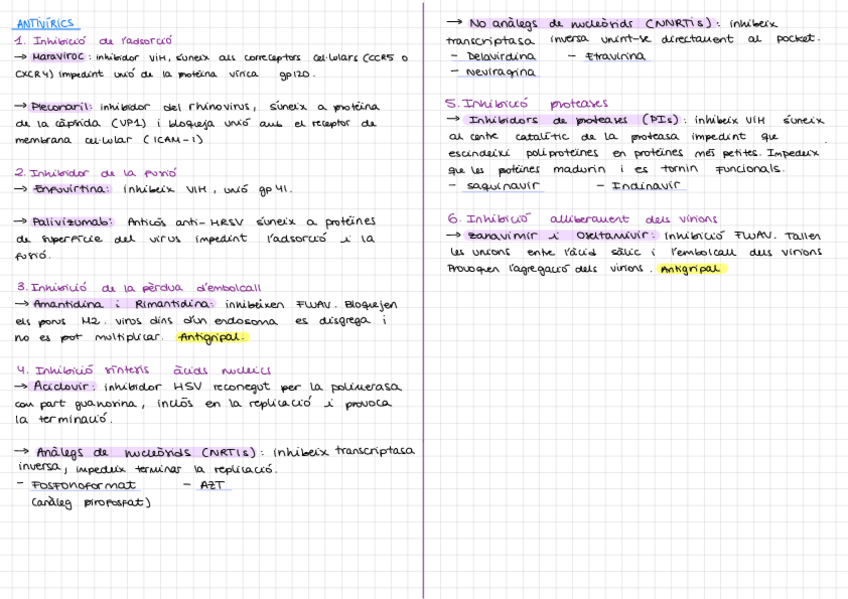 ANTIVÍRICS
1. Inhibició de l'adsorció
→ Maraviroc: inhibidor VIH, s'uneix als correceptors cel·lulars (CCR5 o
CXCR4) impedint unió de la proteïna vírica gp120.
→ Pleconaril: inhibidor del rhinovirus, s'uneix a proteïna
de la càpsida (VP1) i bloqueja unió amb el receptor de
membrana cel·lular (ICAM-1)
2. Inhibidor de la fusió
→ Enfuvirtina: inhibeix VIH, unió gp41.
→ Palivizumab: Anticòs anti-HRSV s'uneix a proteïnes
de superfície del virus impedint l'adsorció i la
fusió.
3. Inhibició de la pèrdua d'embolcall
→ Amantidina i Rimantidina: inhibeixen FLUAV. Bloquejen
els porus M2. virus dins d'un endosoma es disgrega i
no es pot multiplicar. Antigripal.
4. Inhibició síntesis àcids nucleics
→ Aciclovir: inhibidor HSV reconegut per la polimerasa
com part guanosina, inclòs en la replicació i provoca
la terminació.
→ Anàlegs de nucleòsids (NRTIs): inhibeix transcriptasa
inversa, impedeix terminar la replicació.
- Fosfonoformat - AZT
(anàleg pirofosfat)
→ No anàlegs de nucleòsids (NNRTIs): inhibeix
transcriptasa inversa unint-se directament al pocket.
- Delavirdina - Etravirina
- Nevirapina
5. Inhibició proteases
→ Inhibidors de proteases (PIs): inhibeix VIH s'uneix
al centre catalític de la proteasa impedint que
escindeixi poliproteïnes en proteïnes més petites. Impedeix
que les proteïnes madurin i es tornin funcionals.
- saquinavir - Indinavir
6. Inhibició alliberament dels virions
→ Zanavimir i Oseltamivir: inhibició FLUAV. Tallen
les unions entre l'àcid siàlic i l'embolcall dels virions
Provoquen l'agregació dels virions. Antigripal